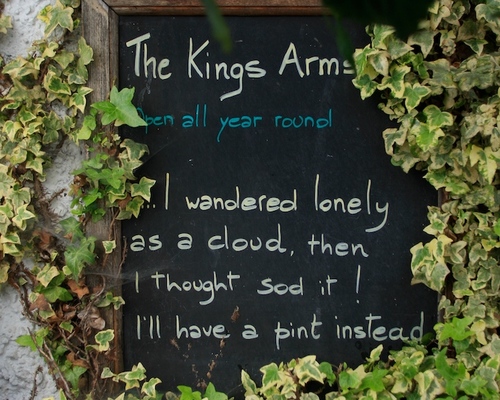 The Kings Arms
Open all year round
...I wandered lonely
as a cloud, then
I thought sod it !
I'll have a pint instead